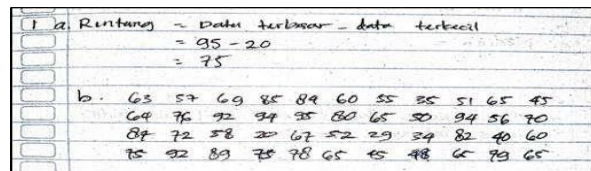 1 a. Rentang = Data terbesar - data terkecil
= 95 - 20
= 75
b. 63 57 69 85 89 60 55 35 51 65 45
64 76 92 94 95 80 65 50 94 56 70
84 72 58 20 67 52 29 34 82 40 60
75 92 89 75 78 65 45 48 65 79 65